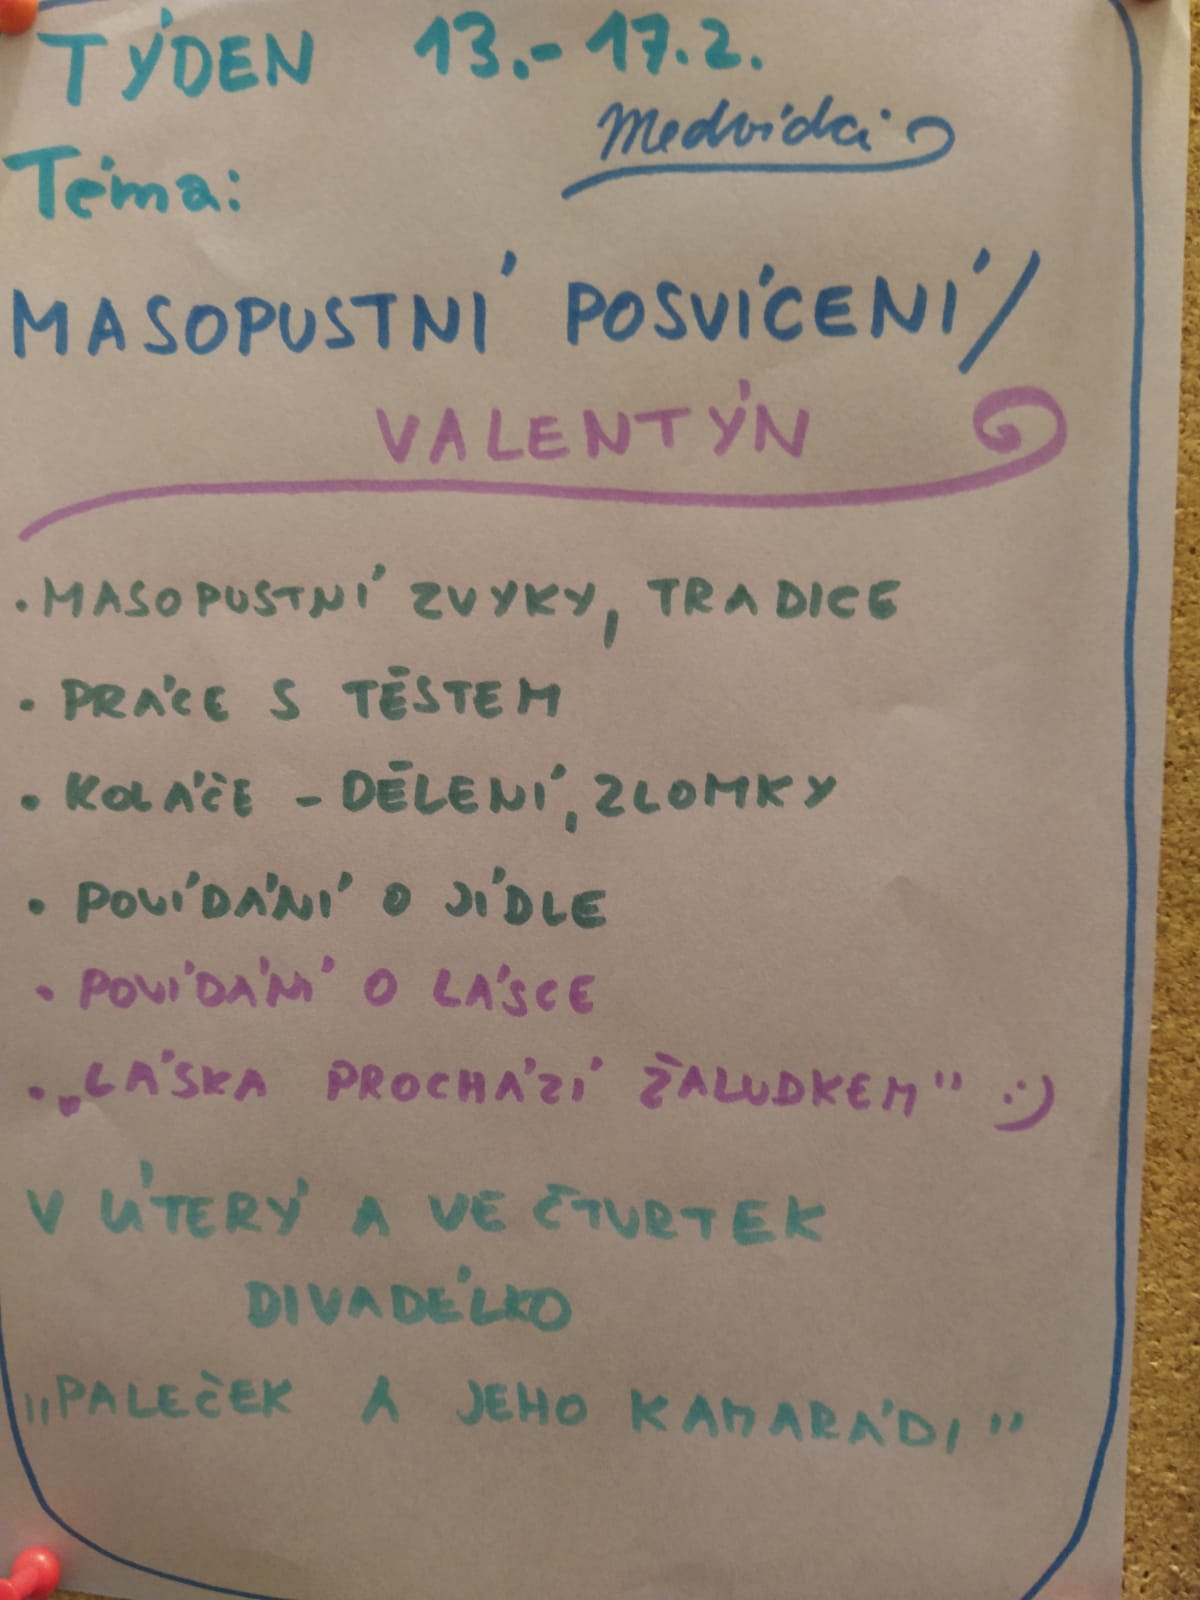 TÝDEN 13.-17.2.
Medvídci
Téma:
MASOPUSTNÍ POSVÍCENÍ/
VALENTÝN
• MASOPUSTNÍ ZVYKY, TRADICE
• PRÁCE S TĚSTEM
• KOLÁČE - DĚLENÍ, ZLOMKY
• POVÍDÁNÍ O JÍDLE
• POVÍDÁNÍ O LÁSCE
• „LÁSKA PROCHÁZÍ ŽALUDKEM" :)
V ÚTERÝ A VE ČTVRTEK
DIVADÉLKO
„PALEČEK A JEHO KAMARÁDI"